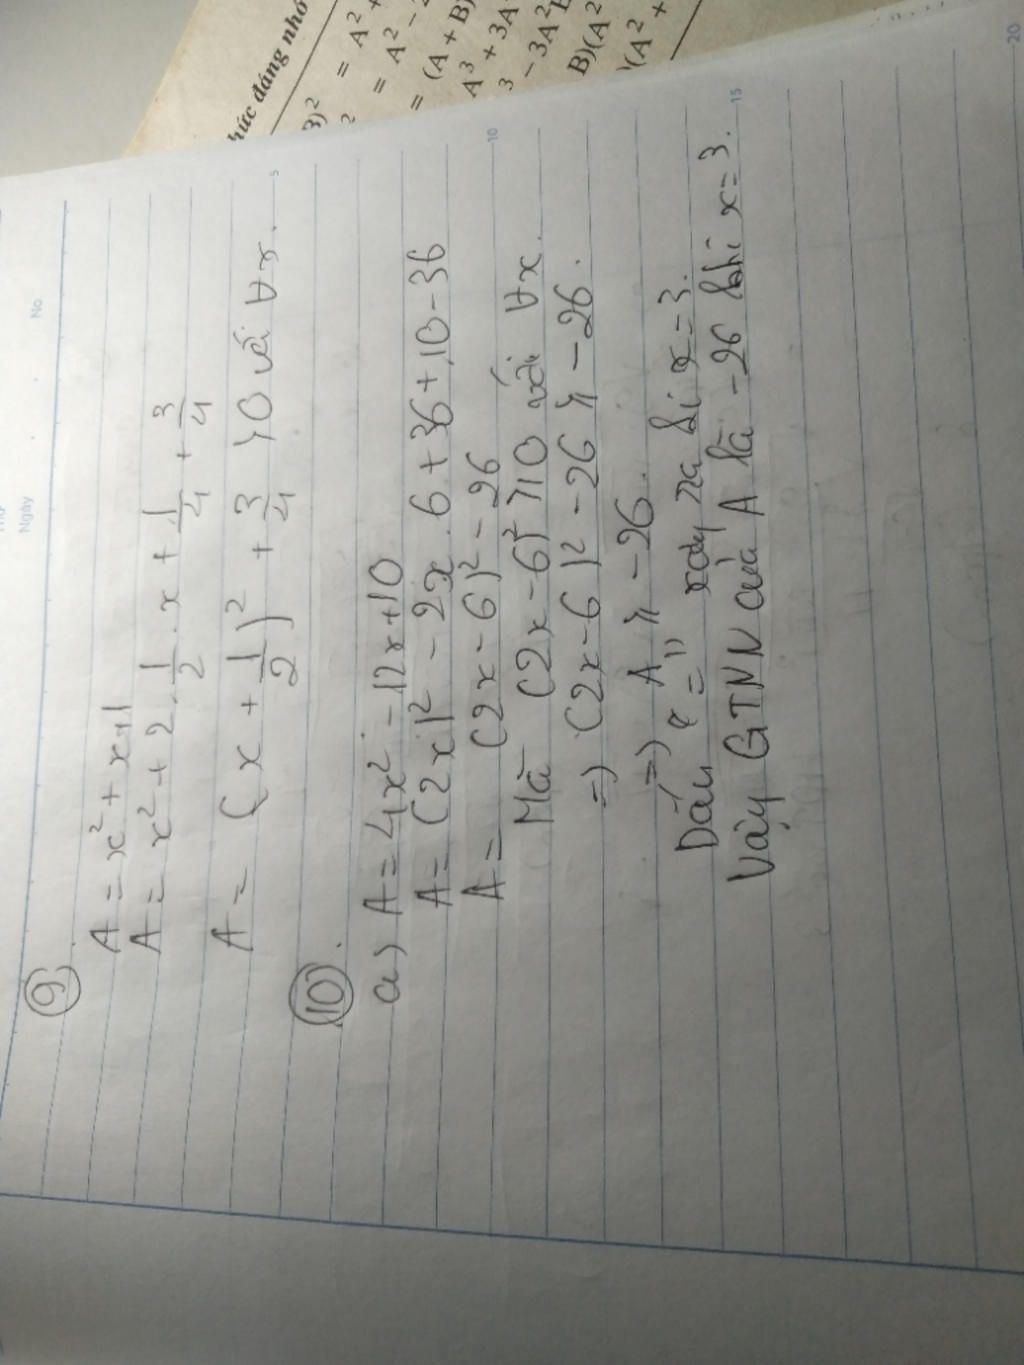 No.
Ngày
5
10
15
20
húc đáng nhớ
= A² +
= A² -
= (A + B)
A³ + 3A
³ - 3A²
B)(A²
(A² +
9
A = x² + x + 1
A = x² + 2 . 1/2 . x + 1/4 + 3/4
A = (x + 1/2)² + 3/4 > 0 với ∀x.
10.
a) A = 4x² - 12x + 10
A = (2x)² - 2x . 6 + 36 + 10 - 36
A = (2x - 6)² - 26
Mà (2x - 6)² ≥ 0 với ∀x.
=> (2x - 6)² - 26 ≥ -26.
=> A ≥ -26.
Dấu "=" xảy ra khi x = 3.
Vậy GTNN của A là -26 khi x = 3.